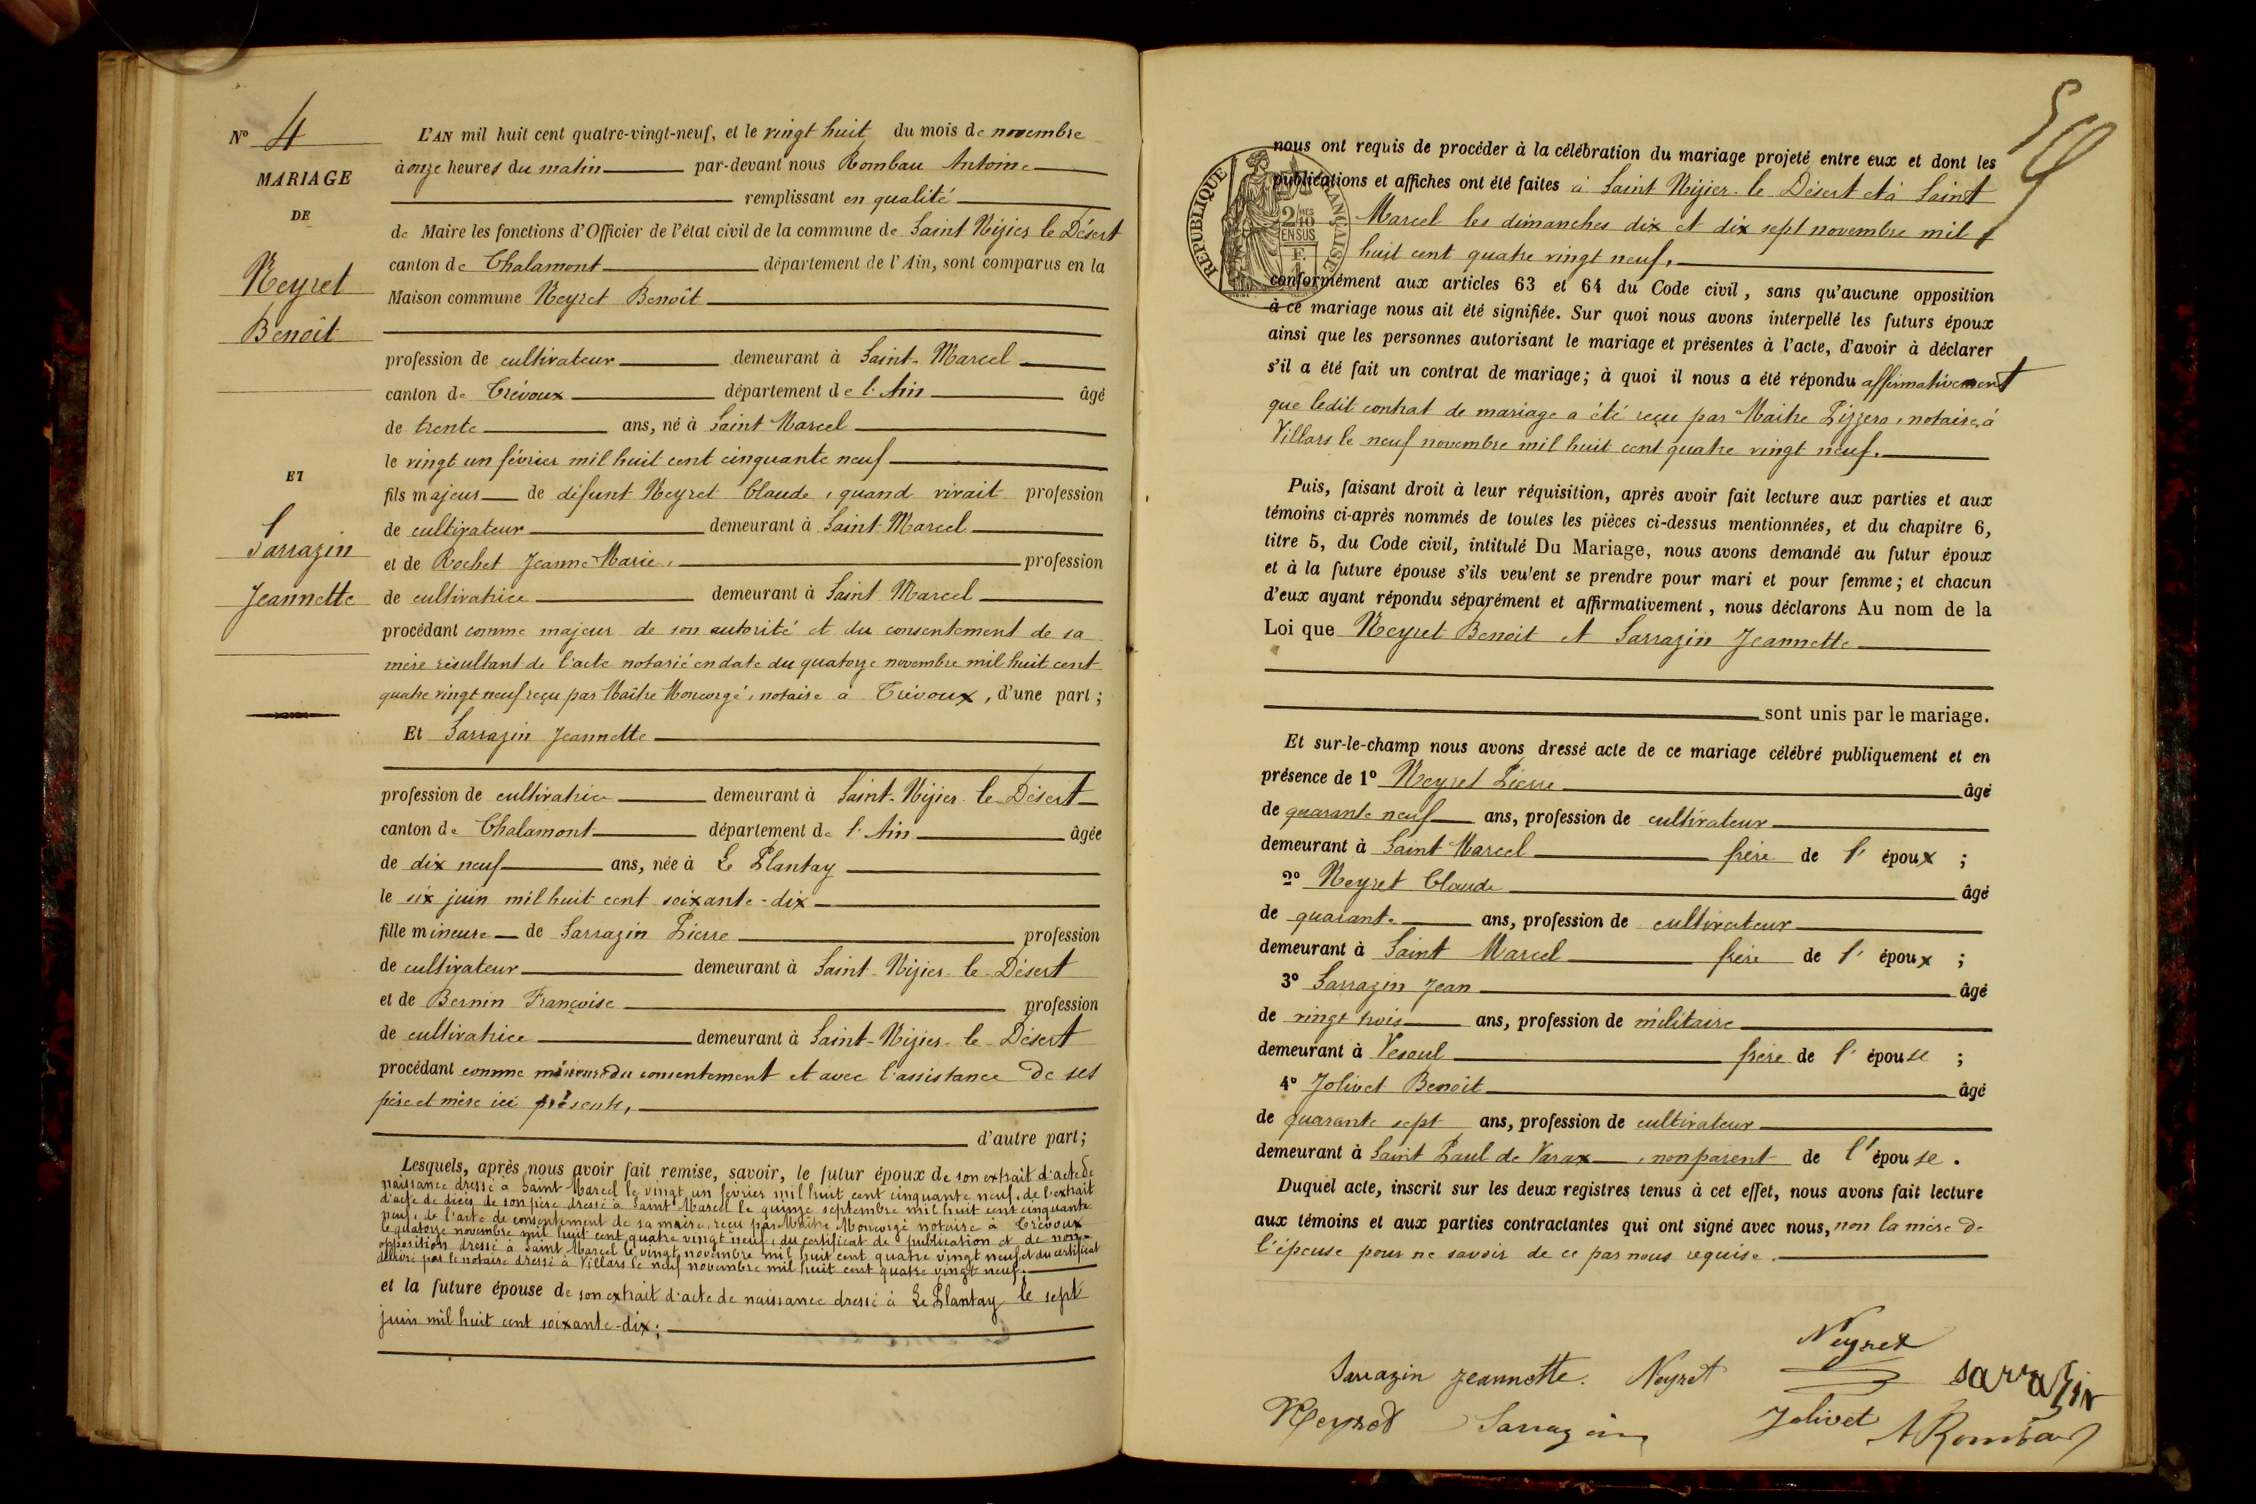 Nº 4
MARIAGE
DE
Neyret
Benoît
ET
Sarrazin
Jeannette
L'AN mil huit cent quatre-vingt-neuf, et le vingt huit du mois de novembre
à onze heures du matin par-devant nous Rombau Antoine
remplissant en qualité
de Maire les fonctions d'Officier de l'état civil de la commune de Saint Nizier le Désert
canton de Chalamont département de l'Ain, sont comparus en la
Maison commune Neyret Benoît
profession de cultivateur demeurant à Saint-Marcel
canton de Trévoux département de l'Ain âgé
de trente ans, né à Saint Marcel
le vingt un février mil huit cent cinquante neuf
fils majeur de défunt Neyret Claude, quand vivait profession
de cultivateur demeurant à Saint-Marcel
et de Rochet Jeanne Marie, profession
de cultivatrice demeurant à Saint Marcel
procédant comme majeur de son autorité et du consentement de sa
mère résultant de l'acte notarié en date du quatorze novembre mil huit cent
quatre vingt neuf reçu par Maître Moncorgé, notaire à Trévoux, d'une part;
Et Sarrazin Jeannette
profession de cultivatrice demeurant à Saint-Nizier-le-Désert
canton de Chalamont département de l'Ain âgée
de dix neuf ans, née à Le Plantay
le six juin mil huit cent soixante-dix
fille mineure de Sarrazin Pierre profession
de cultivateur demeurant à Saint-Nizier-le-Désert
et de Bernin Françoise profession
de cultivatrice demeurant à Saint-Nizier-le-Désert
procédant comme mineure du consentement et avec l'assistance de ses
père et mère ici présents,
d'autre part;
Lesquels, après nous avoir fait remise, savoir, le futur époux de son extrait d'acte de
naissance dressé à Saint Marcel le vingt un février mil huit cent cinquante neuf, de l'extrait
d'acte de décès de son père dressé à Saint Marcel le quinze septembre mil huit cent cinquante
neuf, de l'acte de consentement de sa mère, reçu par Maître Moncorgé notaire à Trévoux
le quatorze novembre mil huit cent quatre vingt neuf, du certificat de publication et de non-
opposition dressé à Saint Marcel le vingt novembre mil huit cent quatre vingt neuf et du certificat
délivré par le notaire dressé à Villars le neuf novembre mil huit cent quatre vingt neuf;
et la future épouse de son extrait d'acte de naissance dressé à Le Plantay le sept
juin mil huit cent soixante-dix;
59
RÉPUBLIQUE FRANÇAISE
2/10MES
EN SUS
nous ont requis de procéder à la célébration du mariage projeté entre eux et dont les
publications et affiches ont été faites à Saint Nizier-le Désert et à Saint
Marcel les dimanches dix et dix sept novembre mil
huit cent quatre vingt neuf,
conformément aux articles 63 et 64 du Code civil, sans qu'aucune opposition
à ce mariage nous ait été signifiée. Sur quoi nous avons interpellé les futurs époux
ainsi que les personnes autorisant le mariage et présentes à l'acte, d'avoir à déclarer
s'il a été fait un contrat de mariage; à quoi il nous a été répondu affirmativement
que ledit contrat de mariage a été reçu par Maître Pizzera, notaire, à
Villars le neuf novembre mil huit cent quatre vingt neuf.
Puis, faisant droit à leur réquisition, après avoir fait lecture aux parties et aux
témoins ci-après nommés de toutes les pièces ci-dessus mentionnées, et du chapitre 6,
titre 5, du Code civil, intitulé Du Mariage, nous avons demandé au futur époux
et à la future épouse s'ils veulent se prendre pour mari et pour femme; et chacun
d'eux ayant répondu séparément et affirmativement, nous déclarons Au nom de la
Loi que Neyret Benoit et Sarrazin Jeannette
sont unis par le mariage.
Et sur-le-champ nous avons dressé acte de ce mariage célébré publiquement et en
présence de 1º Neyret Pierre âgé
de quarante neuf ans, profession de cultivateur
demeurant à Saint Marcel frère de l'époux;
2º Neyret Claude âgé
de quarante ans, profession de cultivateur
demeurant à Saint Marcel frère de l'époux;
3º Sarrazin Jean âgé
de vingt trois ans, profession de militaire
demeurant à Vesoul frère de l'épouse;
4º Jolivet Benoît âgé
de quarante sept ans, profession de cultivateur
demeurant à Saint Paul de Varax, non parent de l'épouse.
Duquel acte, inscrit sur les deux registres tenus à cet effet, nous avons fait lecture
aux témoins et aux parties contractantes qui ont signé avec nous, non la mère de
l'épouse pour ne savoir de ce par nous requise.
Neyret
Sarrazin Jeannette. Neyret Sarrazin
Neyret Sarrazin Jolivet A Rombau